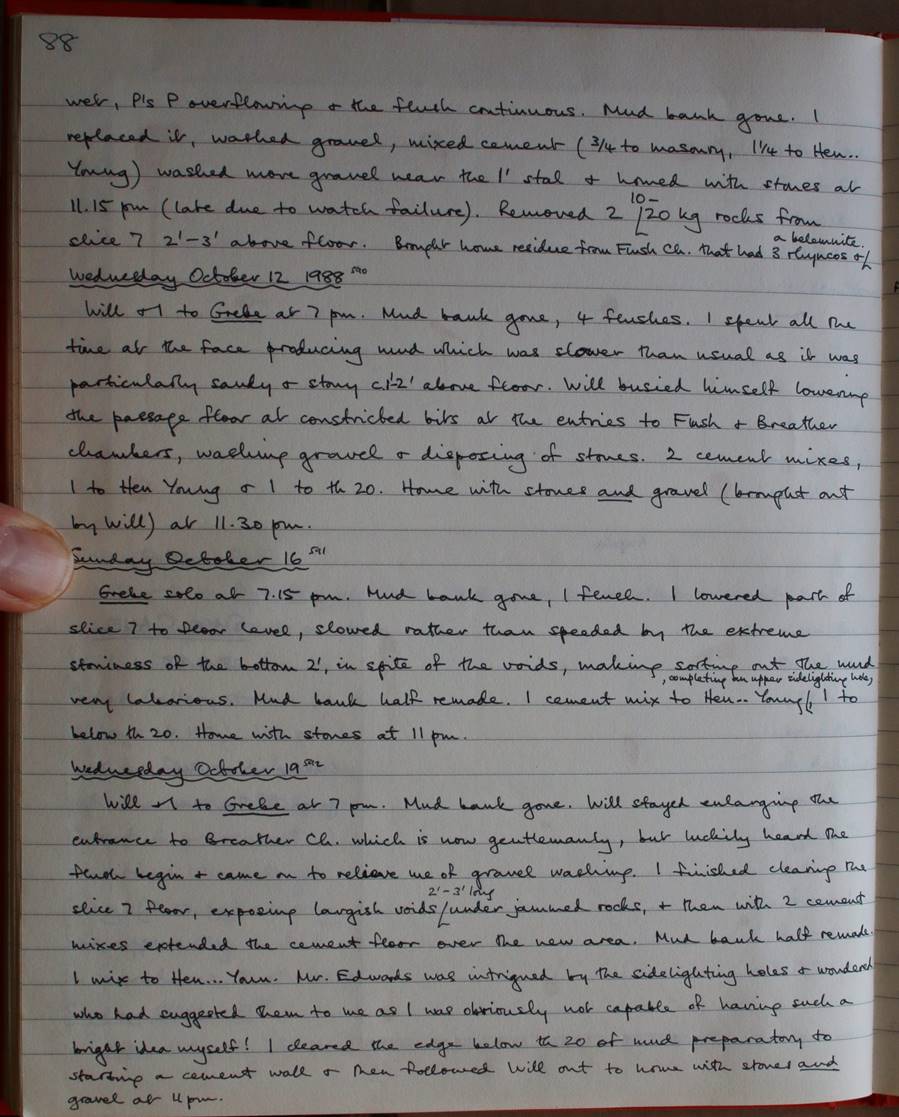 88
wet, P's P overflowing & the flush continuous. Mud bank gone. I
replaced it, washed gravel, mixed cement (3/4 to masonry, 1 1/4 to Hen..
Young) washed more gravel near the 1' stal & homed with stones at
11.15 pm (late due to watch failure). Removed 2 10-20 kg rocks from
slice 7 2'-3' above floor. Brought home residue from Flush Ch. that had 3 rhyncos & a belemnite.
Wednesday October 12 1988 590
Will & I to Grebe at 7 pm. Mud bank gone, 4 flushes. I spent all the
time at the face producing mud which was slower than usual as it was
particularly sandy & stony c.1'-2' above floor. Will busied himself lowering
the passage floor at constricted bits at the entries to Flush & Breather
chambers, washing gravel & disposing of stones. 2 cement mixes,
1 to Hen Young & 1 to th 20. Home with stones and gravel (brought out
by Will) at 11.30 pm.
Sunday October 16 591
Grebe solo at 7.15 pm. Mud bank gone, 1 flush. I lowered part of
slice 7 to floor level, slowed rather than speeded by the extreme
stoniness of the bottom 2', in spite of the voids, making sorting out the mud
very laborious. Mud bank half remade. 1 cement mix to Hen.. Young, completing an upper sidelighting hole, 1 to
below th 20. Home with stones at 11 pm.
Wednesday October 19 592
Will & I to Grebe at 7 pm. Mud bank gone. Will stayed enlarging the
entrance to Breather Ch. which is now gentlemanly, but luckily heard the
flush begin & came on to relieve me of gravel washing. I finished clearing the
slice 7 floor, exposing largish voids 2'-3' long under jammed rocks, & then with 2 cement
mixes extended the cement floor over the new area. Mud bank half remade.
1 mix to Hen... Youn. Mr. Edwards was intrigued by the sidelighting holes & wondered
who had suggested them to me as I was obviously not capable of having such a
bright idea myself! I cleared the edge below th 20 of mud preparatory to
starting a cement wall & then followed Will out to home with stones and
gravel at 11 pm.